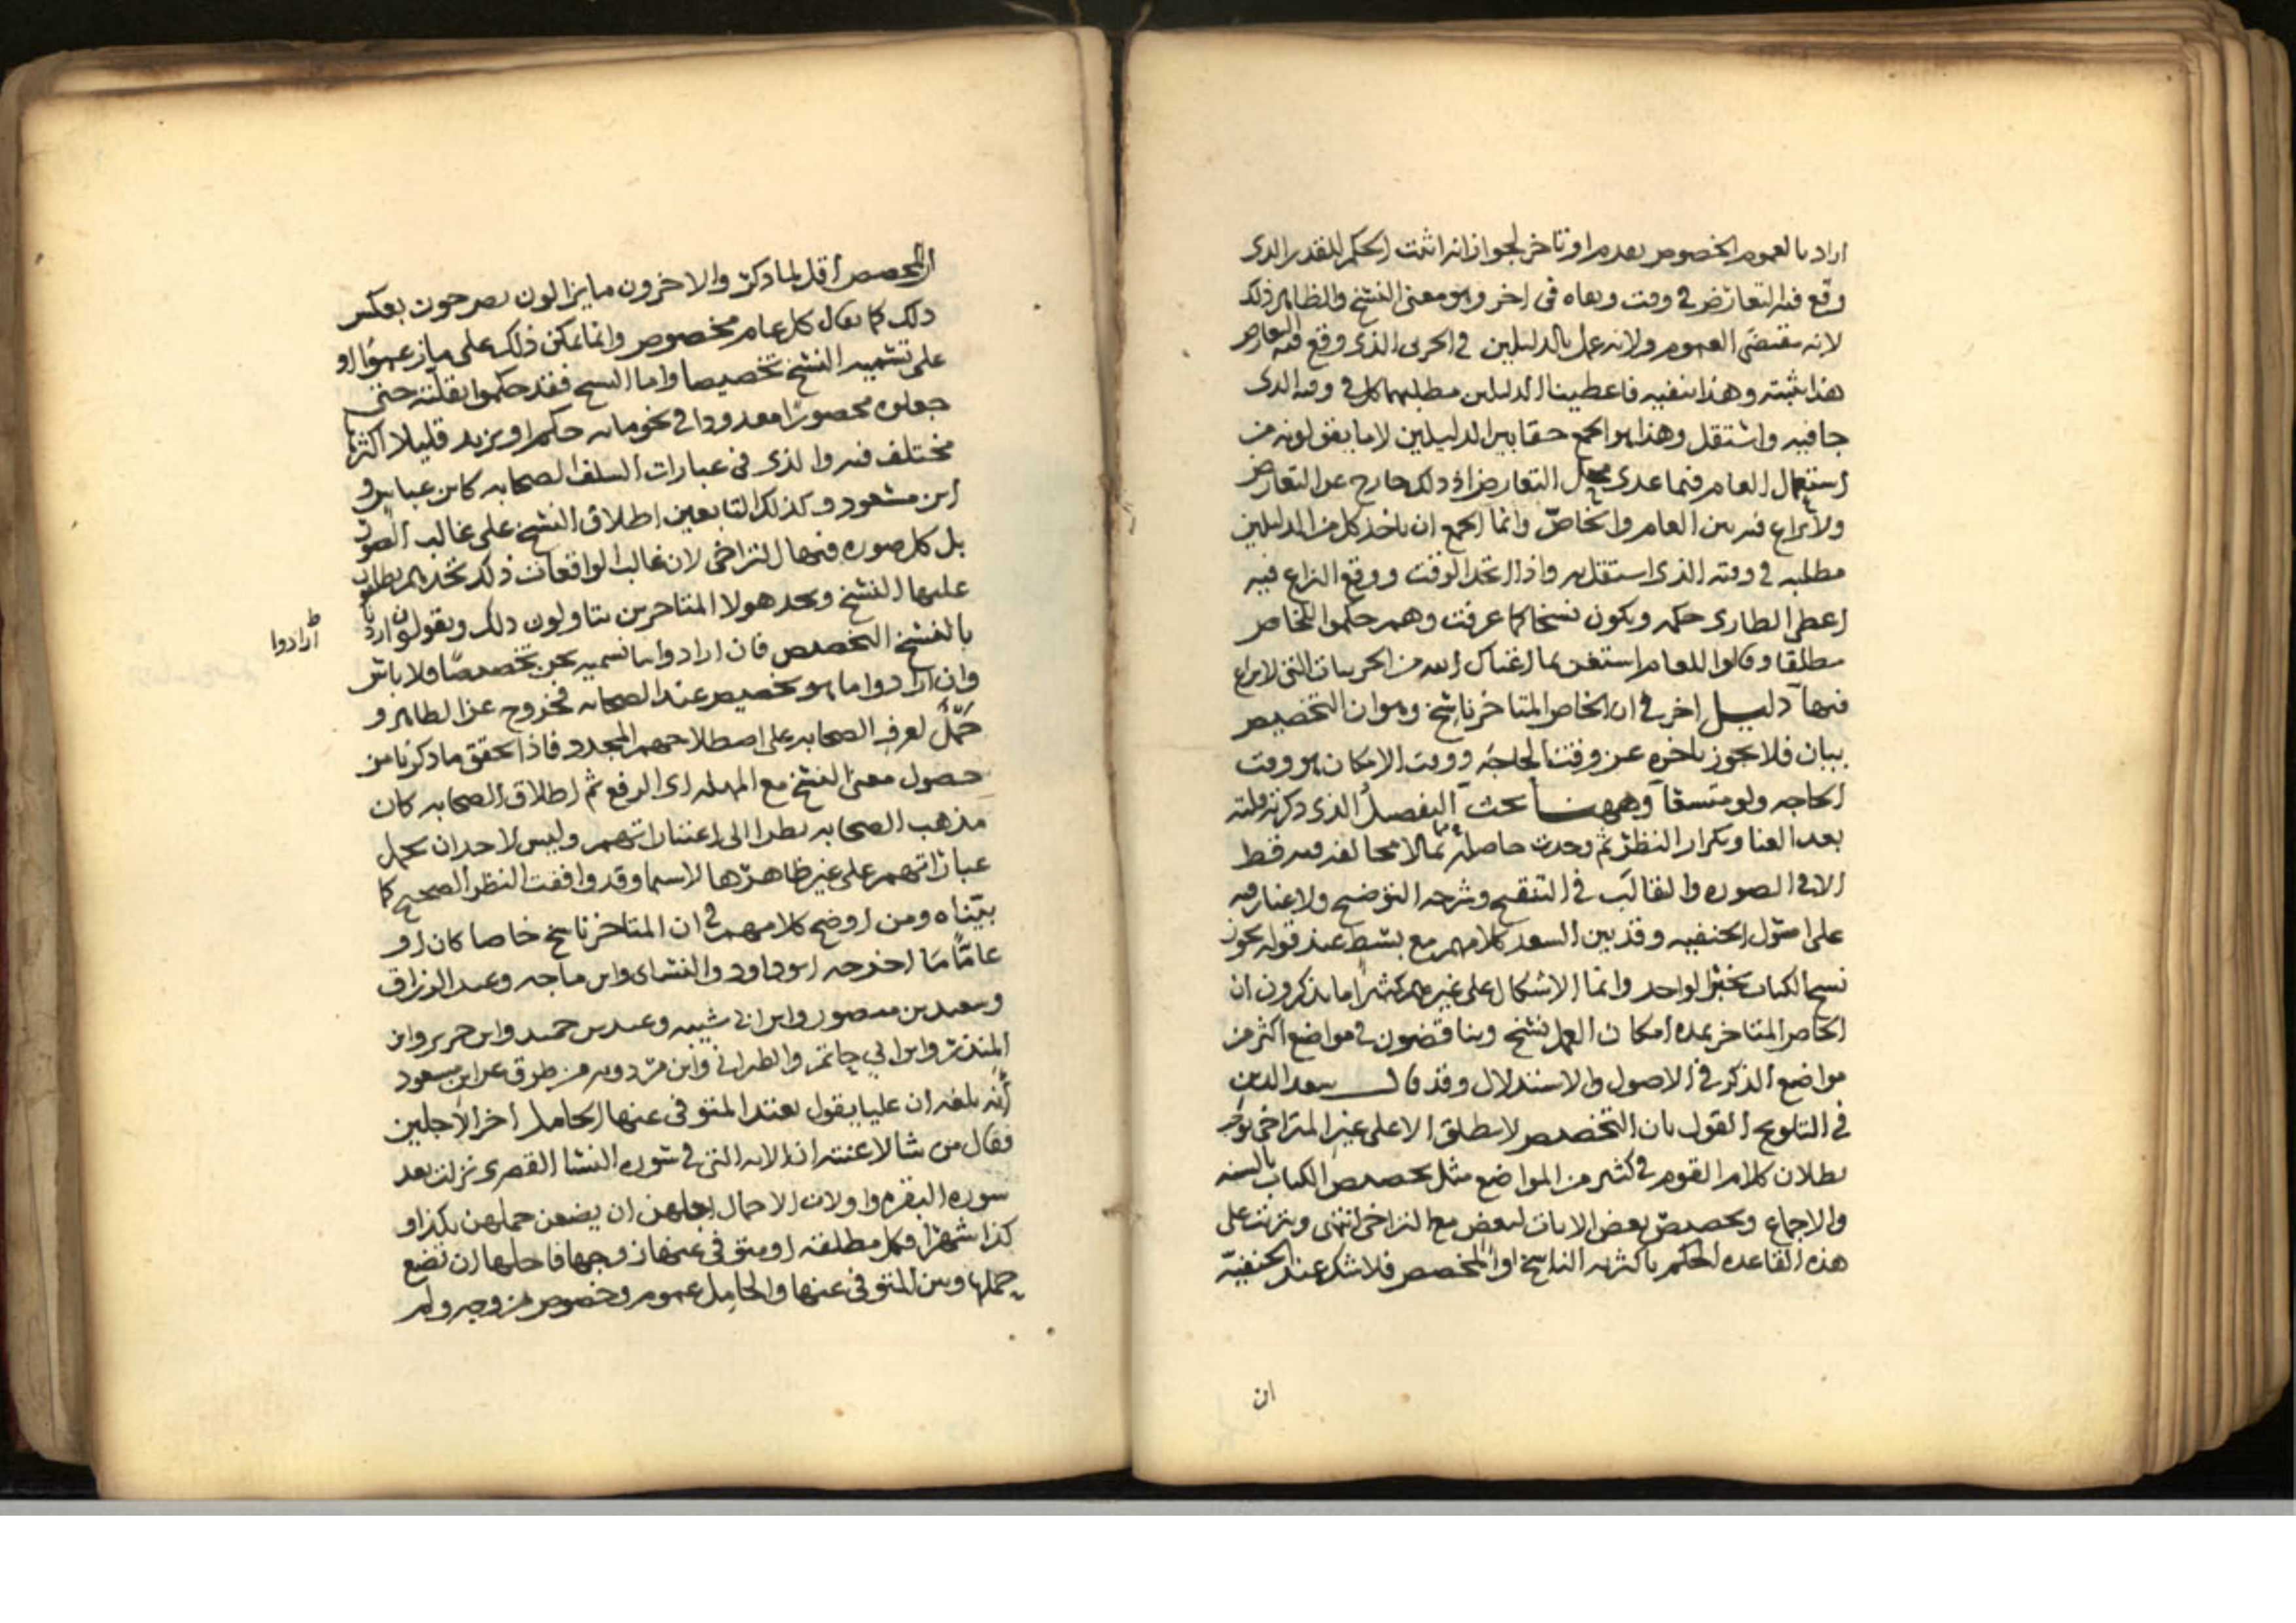 اراد بالعموم الخصوص تقدم او تاخر لجواز انه اثبت الحكم للقدر الذى
وقع فيه التعارض فى وقت ونفاه فى اخر وهو معنى النسخ والظاهر ذلك
لانه مقتضى العموم ولانه عمل بالدليلين فى الجزئى الذى وقع فيه التعارض
هذا يثبته وهذا ينفيه فاعطينا الدليلين مطلبهما كل فى وقته الذى
جا فيه واستقل وهذا هو الجمع حقا بين الدليلين لا ما يقولونه من
استعمال العام فيما عدى محل التعارض اذ ذلك خارج عن التعارض
ولا نزاع فيه بين العام والخاص وانما الجمع ان ياخذ كل من الدليلين
مطلبه فى وقته الذى استقل به واذا اتحد الوقت ووقع النزاع فيه
اعطى الطارى حكمه ويكون نسخا كما عرفت وهم حكموا للخاص
مطلقا وقالوا للعام استغن بما اغناك الله من الجزييات التى لا نزاع
فيها دليل اخر فى ان الخاص المتاخر ناسخ وهو ان التخصيص
بيان فلا يجوز تاخره عن وقت الحاجة ووقت الامكان هو وقت
الحاجه ولو متسقا وههنا بحث التفصيل الذى ذكرته قلته
بعد العنا وتكرار النظر ثم وجدت حاصله مما لا مخالفه فيه قط
الا فى الصوره والقالب فى التنقيح وشرحه التوضيح ولا غبار فيه
على اصول الحنفيه وقد بين السعد كلامهم مع بسط عند قوله يجوز
نسخ الكتاب بخبر الواحد وانما الاشكال على غيرهم كثيرا ما يذكرون ان
الخاص المتاخر بمده امكان العمل نسخ ويناقضون فى مواضع اكثر من
مواضع الذكر فى الاصول والاستدلال وقد قال سعد الدين
فى التلويح القول بان التخصيص لا يطلق الا على غير المتراخى يوجب
بطلان كلام القوم فى كثير من المواضع مثل تخصيص الكتاب بالسنه
والاجماع وتخصيص بعض الايات لبعض مع التراخى انتهى ويترتب على
هذه القاعده الحكم باكثريه الناسخ او المخصص فلا شك عند الحنفيّه
ان
ان المخصص اقل لما ذكر والاخرون ما يزالون يصرحون بعكس
ذلك كما يقال كل عام مخصوص وانما يمكن ذلك على ما زعموا او
على تسميه النسخ تخصيصا واما النسخ فقد حكموا بقلته حتى
جعلوه محصورا معدودا فى نحو مايه حكم او يزيد قليلا اكثرها
مختلف فيه والذى فى عبارات السلف الصحابه كابن عباس و
ابن مسعود وكذلك التابعين اطلاق النسخ على غالب الصور
بل كل صوره فيها التراخى لان غالب الواقعات ذلك تجدهم يطلقون
عليها النسخ وتجد هولا المتاخرين يتاولون ذلك ويقولون ارادوا
ارادوا
بالنسخ التخصيص فان ارادوا ما نسميه نحن تخصيصا فلا باس
وان ارادوا ما هو تخصيص عند الصحابه فخروج عن الظاهر و
حمل لعرف الصحابه على اصطلاحهم المجدد فاذا تحقق ما ذكرنا من
حصول معنى النسخ مع المهله اى الرفع ثم اطلاق الصحابه كان
مذهب الصحابه نظرا الى اعتباراتهم وليس لاحد ان يحمل
عباراتهم على غير ظاهرها لا سيما وقد وافقت النظر الصحيح كما
بيّناه ومن اوضح كلامهم فى ان المتاخر ناسخ خاصا كان او
عامّا ما اخرجه ابو داود والنسائ وابن ماجه وعبد الرزاق
وسعيد بن منصور وابن ابى شيبه وعبد بن حميد وابن جرير وابن
المنذر وابن ابى حاتم والطبرانى وابن مردويه من طرق عن ابن مسعود
انه بلغه ان عليا يقول تعتد المتوفى عنها الحامل اخر الاجلين
فقال من شا لاعنته ان الايه التى فى سوره النسا القصرى نزلت بعد
سوره البقره واولات الاحمال اجلهن ان يضعن حملهن بكذا و
كذا شهرا فكل مطلقه او متوفى عنها زوجها فاجلها ان تضع
حملها وبين المتوفى عنها والحامل عموم وخصوص من وجه ولم